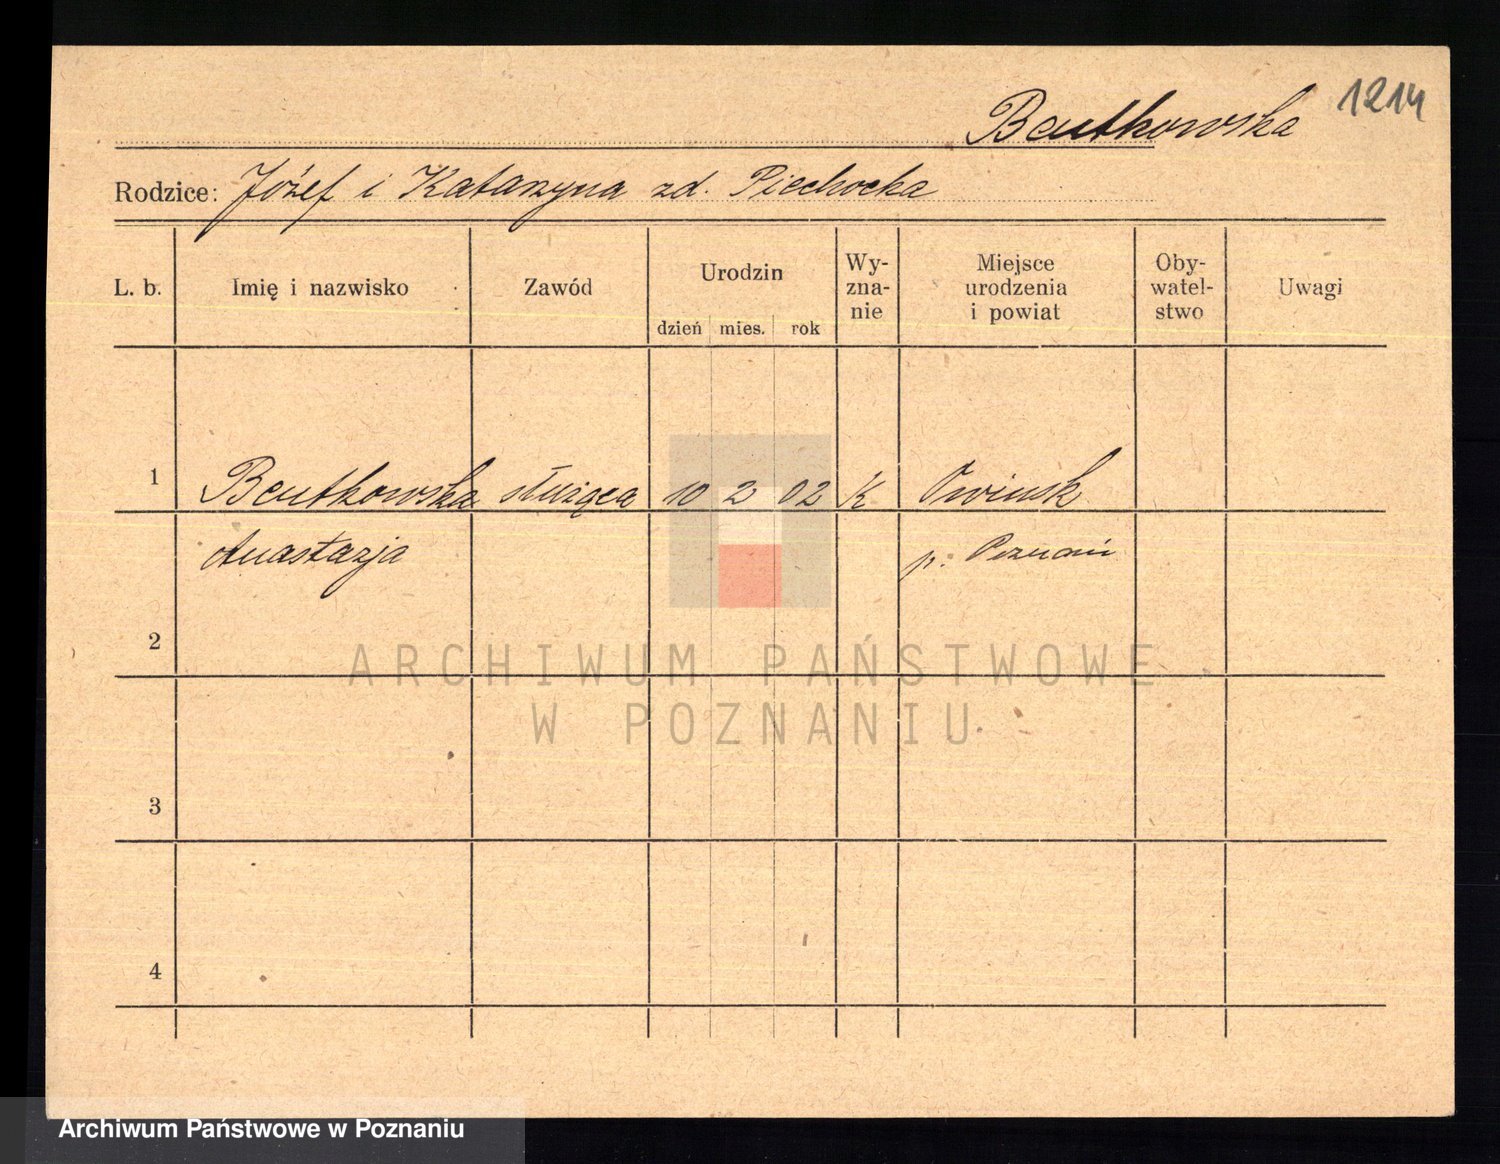 1214
Bentkowska
Rodzice: Józef i Katarzyna zd. Piechocka
L. b. Imię i nazwisko Zawód Urodzin dzień mies. rok Wy-zna-nie Miejsce urodzenia i powiat Oby-watel-stwo Uwagi
1 Bentkowska służąca 10 2 02 k Owińsk
Anastazja p. Poznań
2
ARCHIWUM PAŃSTWOWE
W POZNANIU
3
4
Archiwum Państwowe w Poznaniu